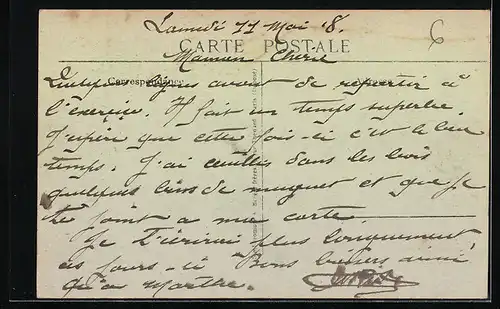 Samedi 11 Mai 18.
CARTE POSTALE
Maman Chérie
Correspondance
Quelques lignes avant de repartir à
l'exercice. Il fait un temps superbe
J'espère que cette fois-ci c'est le beau
temps. J'ai cueilli dans les bois
quelques brins de muguet et que je
te joint a ma carte.
Je t'écrirai plus longuement
ces jours-ci Bons baisers ainsi
qu'a Marthe.
6